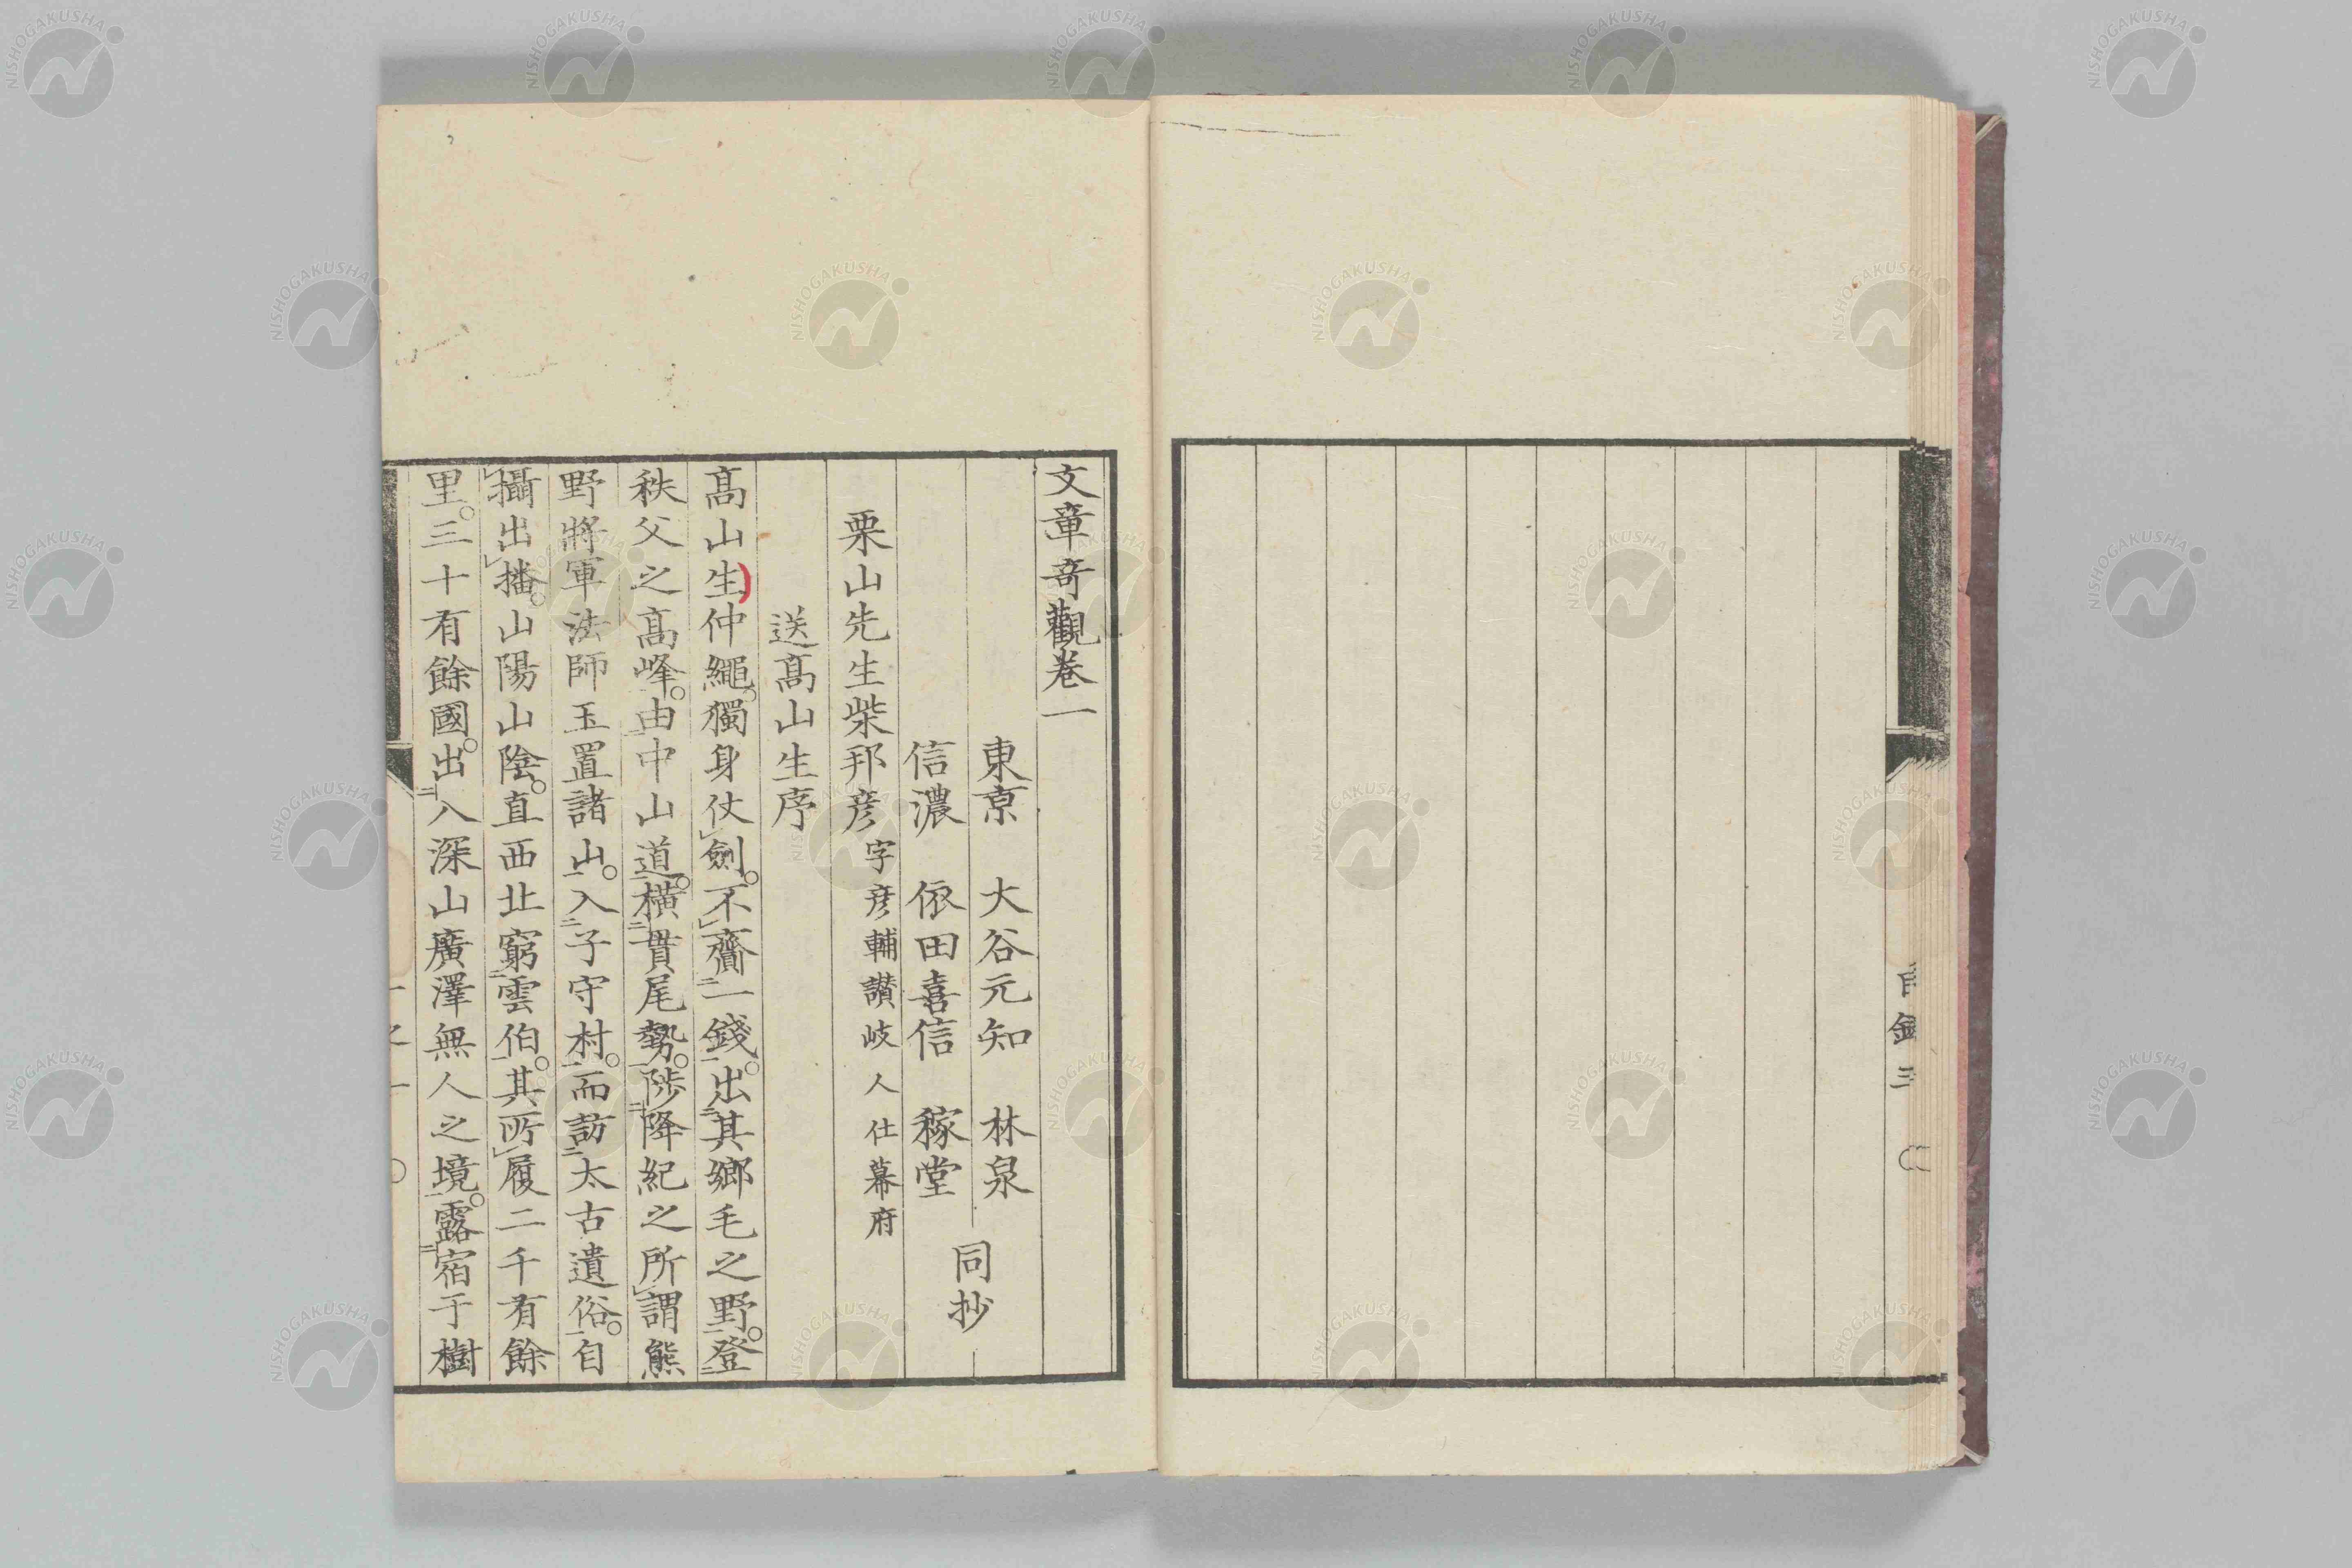 目錄 三
文章奇觀卷一
東京 大谷元知 林泉
信濃 依田喜信 稼堂
同抄
栗山先生柴邦彦字彦輔讃岐人仕幕府
送髙山生序
髙山生仲繩。獨身仗㆑劍。不㆑齎㆓一錢㆒。出㆓其鄉毛之野㆒。登㆓
秩父之髙峰㆒。由㆓中山道㆒。横㆓貫尾勢㆒。陟㆓降紀之所㆑謂熊
野將軍法師玉置諸山㆒。入㆓子守村㆒。而訪㆓太古遺俗㆒。自
㆑攝出㆑播。山陽山陰。直西北窮㆓雲伯㆒。其所㆑履二千有餘
里。三十有餘國。出㆓入深山廣澤無人之境㆒。露㆓宿于樹
NISHOGAKUSHA